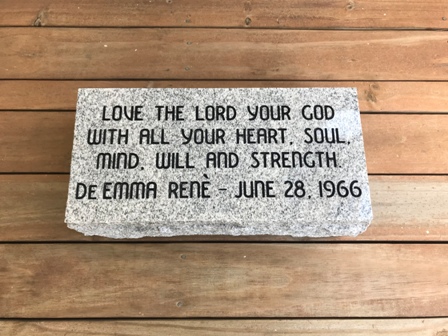 LOVE THE LORD YOUR GOD
WITH ALL YOUR HEART, SOUL,
MIND, WILL AND STRENGTH.
DE EMMA RENÈ - JUNE 28, 1966